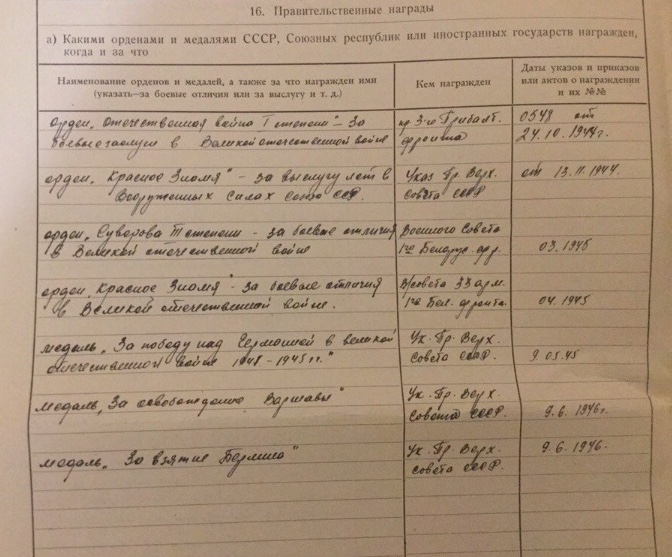 16. Правительственные награды
а) Какими орденами и медалями СССР, Союзных республик или иностранных государств награжден,
когда и за что
Наименование орденов и медалей, а также за что награжден ими
(указать—за боевые отличия или за выслугу и т. д.)
Кем награжден
Даты указов и приказов
или актов о награждении
и их №№
орден „Отечественная война I степени" – за
боевые заслуги в Великой отечественной войне
пр 3-го Прибалт.
фронта
0548 от
24.10.1944г.
орден „Красное Знамя" – за выслугу лет в
Вооруженных Силах Союза ССР.
Указ Пр. Верх.
Совета СССР.
от 13.11.1944.
орден „Суворова II степени – за боевые отличия
в Великой отечественной войне
Военного Совета
1го Белорус. фр.
03.1945
орден „Красное Знамя" – за боевые отличия
в Великой отечественной войне.
В/совета 33 арм.
1го Бел. фронта.
04.1945
медаль „За победу над Германией в великой
отечественной войне 1941–1945 гг."
Ук. Пр. Верх.
Совета СССР.
9.05.45
медаль „За освобождение Варшавы"
Ук. Пр. Верх
Совета СССР.
9.6.1946г.
медаль „За взятие Берлина"
Ук. Пр. Верх.
Совета СССР.
9.6.1946.